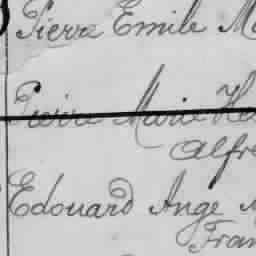 Pierre Emile M
Pierre Marie He
Alfre
Edouard Ange
Fran